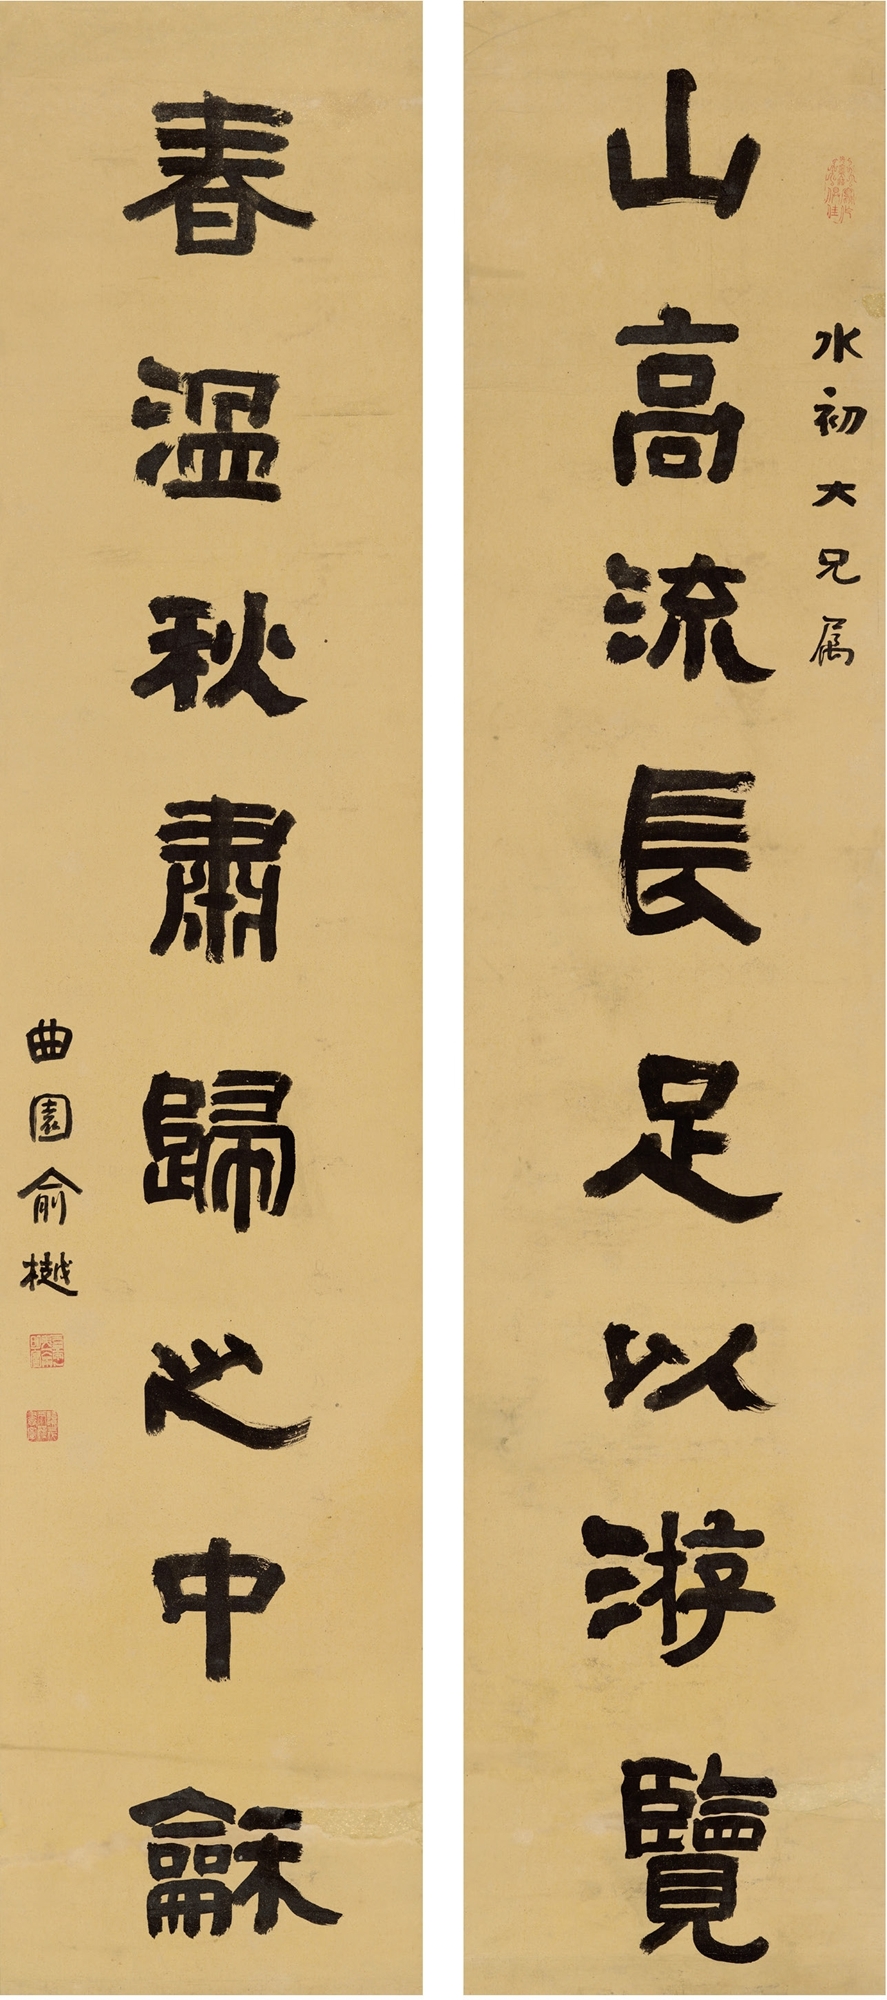 水初大兄属
山高流長足以游覽
春溫秋肅歸之中龢
曲園俞樾